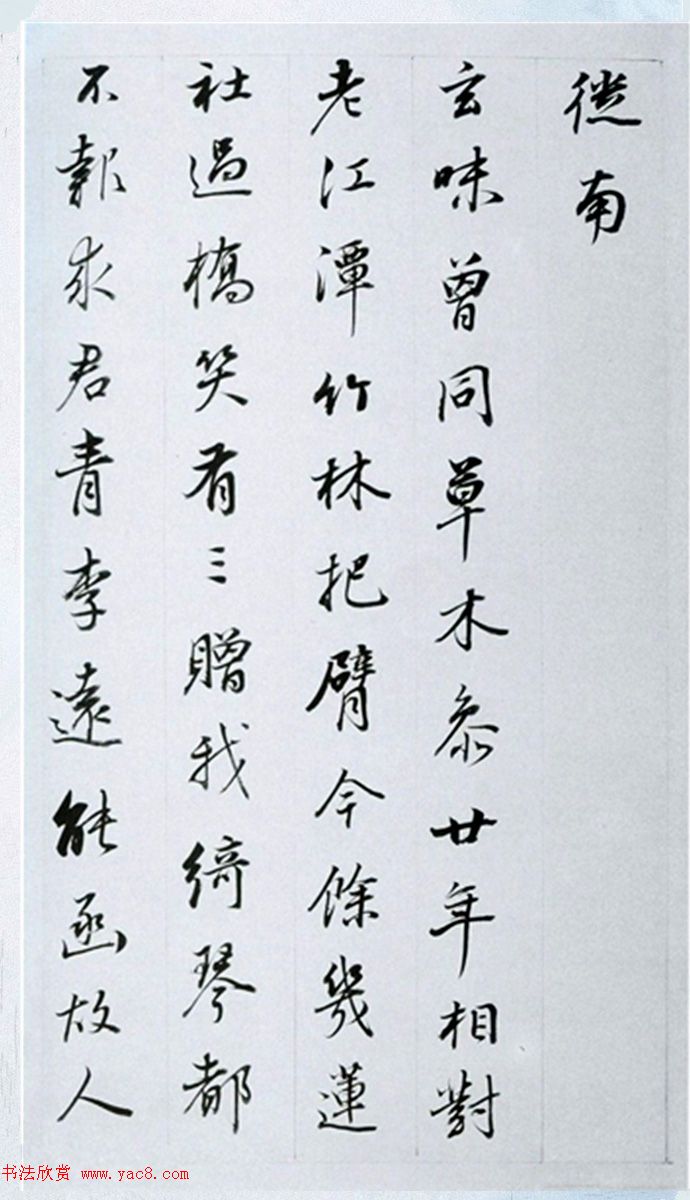 徙南
玄味曾同草木參廿年相對
老江潭竹林把臂今餘幾蓮
社過橋笑有三贈我綺琴都
不報求君青李遠能函故人
书法欣赏 www.yac8.com